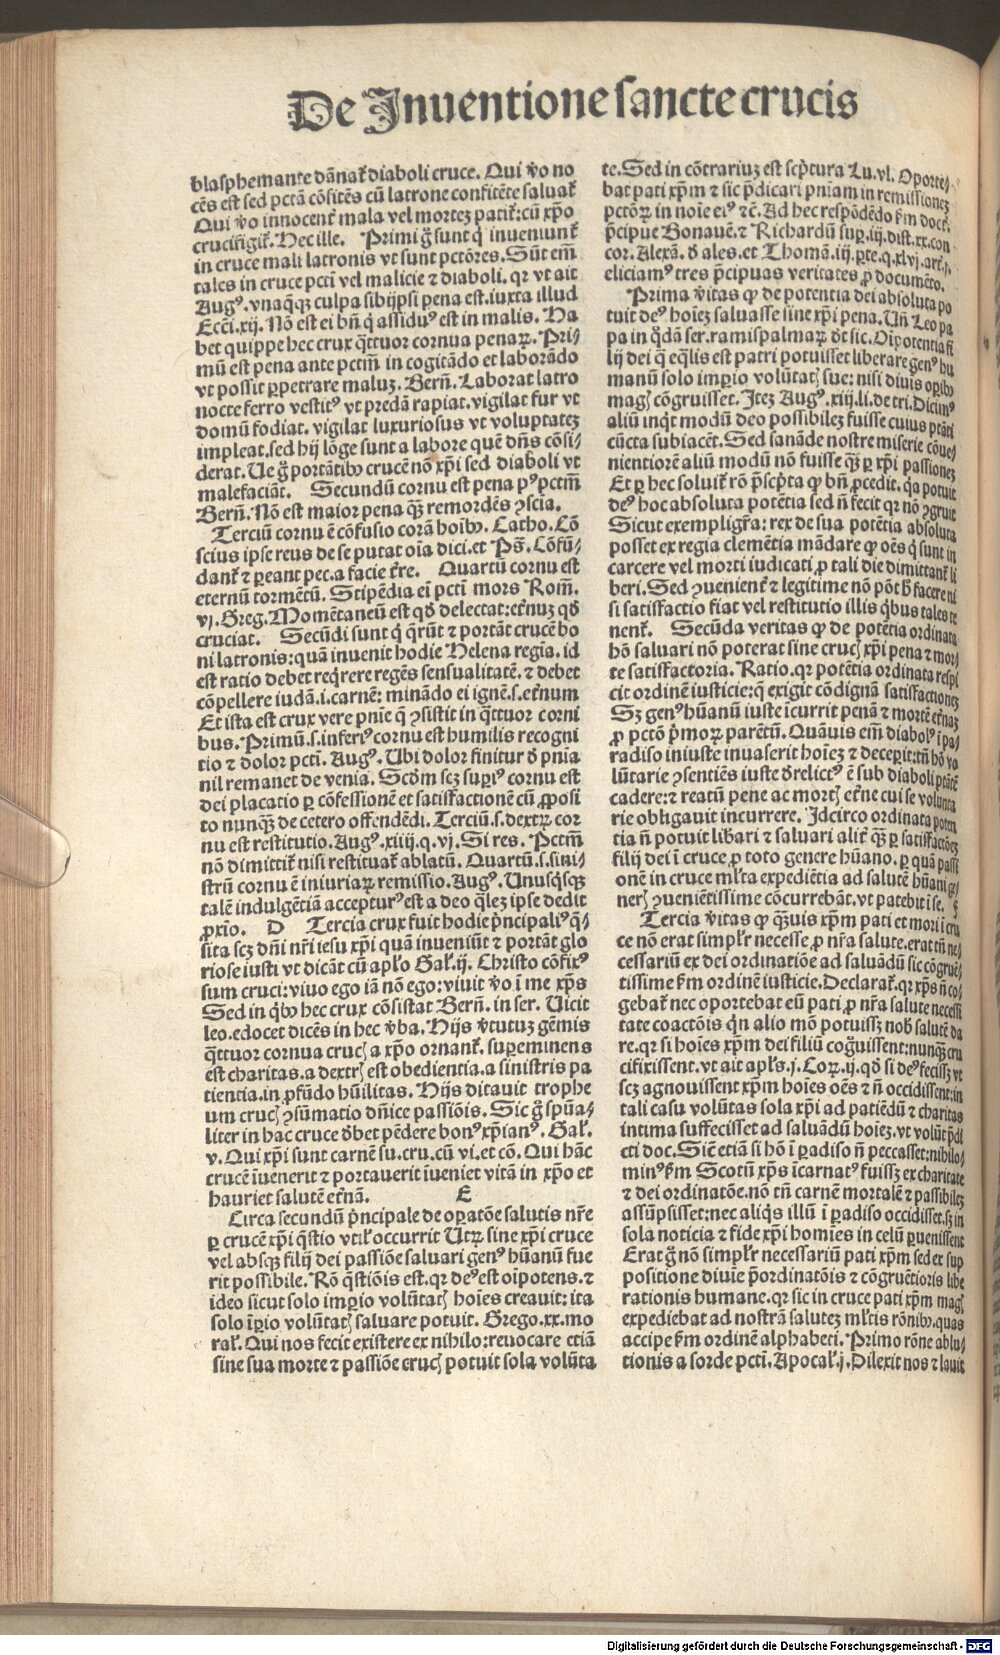 De Inuentione sancte crucis
blasphemante dānat̄ diaboli cruce. Qui v̄o no
cēs est sed pctā cōsitēs cū latrone confitēte saluat̄
Qui v̄o innocent̄ mala vel mortez patit̄: cū xp̄o
crucifigit̄. Hec ille. Primi g̊ sunt q̇ inueniunt̄
in cruce mali latronis vt sunt pctōres. Sūt em̄
tales in cruce pcti vel malicie ⁊ diaboli. qꝛ vt ait
Augꝰ. vnaq̄qꝫ culpa sibijpsi pena est. iuxta illud
Ecci. xij. Nō est ei bn̄ q̇ assiduꝰ est in malis. Ha
bet quippe hec crux q̄ttuor cornua penaꝝ. Pri⸗
mū est pena ante pctm̄ in cogitādo et laborādo
vt possit ꝑpetrare maluz. Bern̄. Laborat latro
nocte ferro vestitꝰ vt predā rapiat. vigilat fur vt
domū fodiat. vigilat luxuriosus vt voluptatez
impleat. sed hij lōge sunt a labore quē dn̄s cōsi⸗
derat. Ue g̊ portātibꝰ crucē nō xp̄i sed diaboli vt
malefaciāt. Secundū cornu est pena pꝰ pctm̄
Bern̄. Nō est maior pena q̄ꝫ remordēs ꝯscia.
Terciū cornu ē cōfusio corā hoībꝰ. Catho. Cō
scius ipse reus de se putat oīa dici. et Ps̄. Cōfū⸗
dant̄ ⁊ ꝑeant pec. a facie t̄re. Quartū cornu est
eternū tormētū. Stipēdia ei pcti mors Rom̄.
vj. Greg. Momētaneū est qd̄ delectat: et̄nuz qd̄
cruciat. Secūdi sunt q̇ q̄rūt ⁊ portāt crucē bo
ni latronis: quā inuenit hodie Helena regīa. id
est ratio debet reqrere regēs sensualitatē. ⁊ debet
cōpellere iudā .i. carnē: minādo ei ignē .s. et̄num
Et ista est crux vere pnīe q̄ ꝯsistit in q̄ttuor corni
bus. Primū .s. inferiꝰ cornu est humilis recogni
tio ⁊ dolor pcti. Augꝰ. Ubi dolor finitur d̄ pnīa
nil remanet de venia. Scd̄m scꝫ supiꝰ cornu est
dei placatio ꝑ cōfessionē et satisfactionē cū ꝓposi
to nunq̄ꝫ de cetero offendēdi. Terciū .s. dextꝝ cor
nu est restitutio. Augꝰ. xiiij. q. vj. Si res. Pctm̄
nō dimittit̄ nisi restituat̄ ablatū. Quartū .s. sini⸗
strū cornu ē iniuriaꝝ remissio. Augꝰ. Unusq̇sqꝫ
talē indulgētiā accepturꝰ est a deo q̄lez ipse dedit
ꝓxīo. D Tercia crux fuit hodie p̄ncipaliꝰ q̄⸗
sita scꝫ dn̄i nr̄i iesu xp̄i quā inueniūt ⁊ portāt glo
riose iusti vt dicāt cū apl̄o Gal̄. ij. Christo cōfixꝰ
sum cruci: viuo ego iā nō ego: viuit v̄o ī me xp̄s
Sed in q̇bꝰ hec crux cōsistat Bern̄. in ser. Uicit
leo. edocet dicēs in hec v̄ba. Hijs v̄tutuz gēmis
q̄ttuor cornua crucꝭ a xp̄o ornant̄. supeminens
est charitas. a dextrꝭ est obedientia. a sinistris pa
tientia. in ꝓfūdo hūilitas. Hijs ditauit trophe
um crucꝭ ꝯsūmatio dn̄ice passiōis. Sic g̊ spūa⸗
liter in hac cruce d̄bet pēdere bonꝰ xp̄ianꝰ. Gal̄.
v. Qui xp̄i sunt carnē su. cru. cū vi. et cō. Qui hāc
crucē īuenerit ⁊ portauerit īueniet vitā in xp̄o et
hauriet salutē et̄nā. E
Circa secundū p̄ncipale de oꝑatōe salutis nr̄e
ꝑ crucē xp̄i q̄stio vtil̄ occurrit Utꝝ sine xp̄i cruce
vel absqꝫ filij dei passiōe saluari genꝰ hūanū fue
rit possibile. Rō q̄stiōis est. qꝛ deꝰ est oīpotens. ⁊
ideo sicut solo imꝑio volūtatꝭ hoīes creauit: ita
solo īꝑio volūtatꝭ saluare potuit. Grego. xx. mo
ral̄. Qui nos fecit existere ex nihilo: reuocare etiā
sine sua morte ⁊ passiōe crucꝭ potuit sola volūta
te. Sed in cōtrariuz est scp̄tura Lu. vl. Oporte⸗
bat pati xp̄m ⁊ sic p̄dicari pniam in remissionez
pctōꝝ in noīe eiꝰ ⁊c̄. Ad hec respōdēdo ẜm doct.
p̄cipue Bonauē. ⁊ Richardū suꝑ. iij. dist. xx. con
cor. Alexā. d̄ ales. et Thomā. iij. ꝑte. q. xlvj. art. j.
eliciamꝰ tres p̄cipuas veritates ꝓ documēto.
Prima v̄itas ꝙ de potentia dei absoluta po
tuit deꝰ hoīez saluasse sine xp̄i pena. Un̄ Leo pa
pa in q̄dā ser. ramispalmaꝝ d̄t sic. Oīpotentia fi
lij dei q̄ eq̄lis est patri potuisset liberare genꝰ hu
manū solo imꝑio volūtatꝭ sue: nisi diuis oꝑibꝰ
magꝭ cōgruisset. Itez Augꝰ. xiij. li. de tri. Dicimꝰ
aliū inq̇t modū deo possibilez fuisse cuius ptāti
cūcta subiacēt. Sed sanāde nostre miserie cōue⸗
nientiorē aliū modū nō fuisse q̄ꝫ ꝑ xp̄i passionez
Et ꝑ hec soluit̄ rō p̄scp̄ta ꝙ bn̄ ꝓcedit. q̇a potuit
deꝰ hoc absoluta potētia sed n̄ fecit qꝛ nō ꝯgruit
Sicut exempligr̄a: rex de sua potētia absoluta
posset ex regia clemētia mādare ꝙ oēs q̇ sunt in
carcere vel morti iudicati ꝓ tali die dimittant̄ li
beri. Sed ꝯuenient̄ ⁊ legitime nō pōt h̄ facere ni
si satisfactio fiat vel restitutio illis q̇bus tales te
nent̄. Secūda veritas ꝙ de potētia ordinata
hō saluari nō poterat sine crucꝭ xp̄i pena ⁊ mor⸗
te satisfactoria. Ratio. qꝛ potētia ordinata respi
cit ordinē iusticie: q̄ exigit cōdignā satisfactionez
Sꝫ genꝰ hūanū iuste īcurrit penā ⁊ mortē et̄naꝫ
ꝓ pctō p̄moꝝ parētū. Quāuis em̄ diabolꝰ ī pa⸗
radiso iniuste inuaserit hoīez ⁊ deceperit: tn̄ hō vo
lūtarie ꝯsentiēs iuste d̄relictꝰ ē sub diaboli ptāte
cadere: ⁊ reatū pene ac mortꝭ et̄ne cui se volunta
rie obligauit incurrere. Idcirco ordinata poten
tia n̄ potuit lib̄ari ⁊ saluari alit̄ q̄ꝫ ꝑ satisfactōez
filij dei ī cruce ꝓ toto genere hūano. ꝑ quā passi
onē in cruce ml̄ta expediētia ad salutē hūani ge⸗
nerꝭ ꝯueniētissime cōcurrebāt. vt patebit ī se. §
Tercia v̄itas ꝙ q̄ꝫuis xp̄m pati et mori ī cru
ce nō erat simpl̄r necesse ꝓ nr̄a salute. erat tn̄ ne⸗
cessariū ex dei ordinatiōe ad saluādū sic cōgruē⸗
tissime ẜm ordinē iusticie. Declarat̄. qꝛ xp̄s n̄ co⸗
gebat̄ nec oportebat eū pati ꝓ nr̄a salute necessi
tate coactōis q̇n alio mō potuissꝫ nob̄ salutē da
re. qꝛ si hoīes xp̄m dei filiū cog̊uissent: nunq̄ꝫ cru
cifixissent. vt ait apl̄s. j. Coꝝ. ij. qd̄ si deꝰ fecissꝫ vt
scꝫ agnouissent xp̄m hoīes oēs ⁊ n̄ occidissent: in
tali casu volūtas sola xp̄i ad patiēdū ⁊ charitas
intima suffecisset ad saluandū hoīez. vt volūt p̄di
cti doc. Sic̄ etiā si hō ī ꝑadiso n̄ peccasset: nihilo⸗
minꝰ ẜm Scotū xp̄s īcarnatꝰ fuissꝫ ex charitate
⁊ dei ordinatōe. nō tn̄ carnē mortalē ⁊ passibilez
assūpsisset: nec aliq̇s illū ī ꝑadiso occidisset. sꝫ in
sola noticia ⁊ fide xp̄i homīes in celū ꝑuenissent
Erat g̊ nō simpl̄r necessariū pati xp̄m sed ex sup
positione diuīe p̄ordinatōis ⁊ cōgruētioris libe
rationis humane. qꝛ sic in cruce pati xp̄m magꝭ
expediebat ad nostrā salutez ml̄tis rōnibꝰ. quas
accipe ẜm ordinē alphabeti. Primo rōne ablu⸗
tionis a sorde pcti. Apocal̄. j. Dilexit nos ⁊ lauit
Digitalisierung gefördert durch die Deutsche Forschungsgemeinschaft - DFG